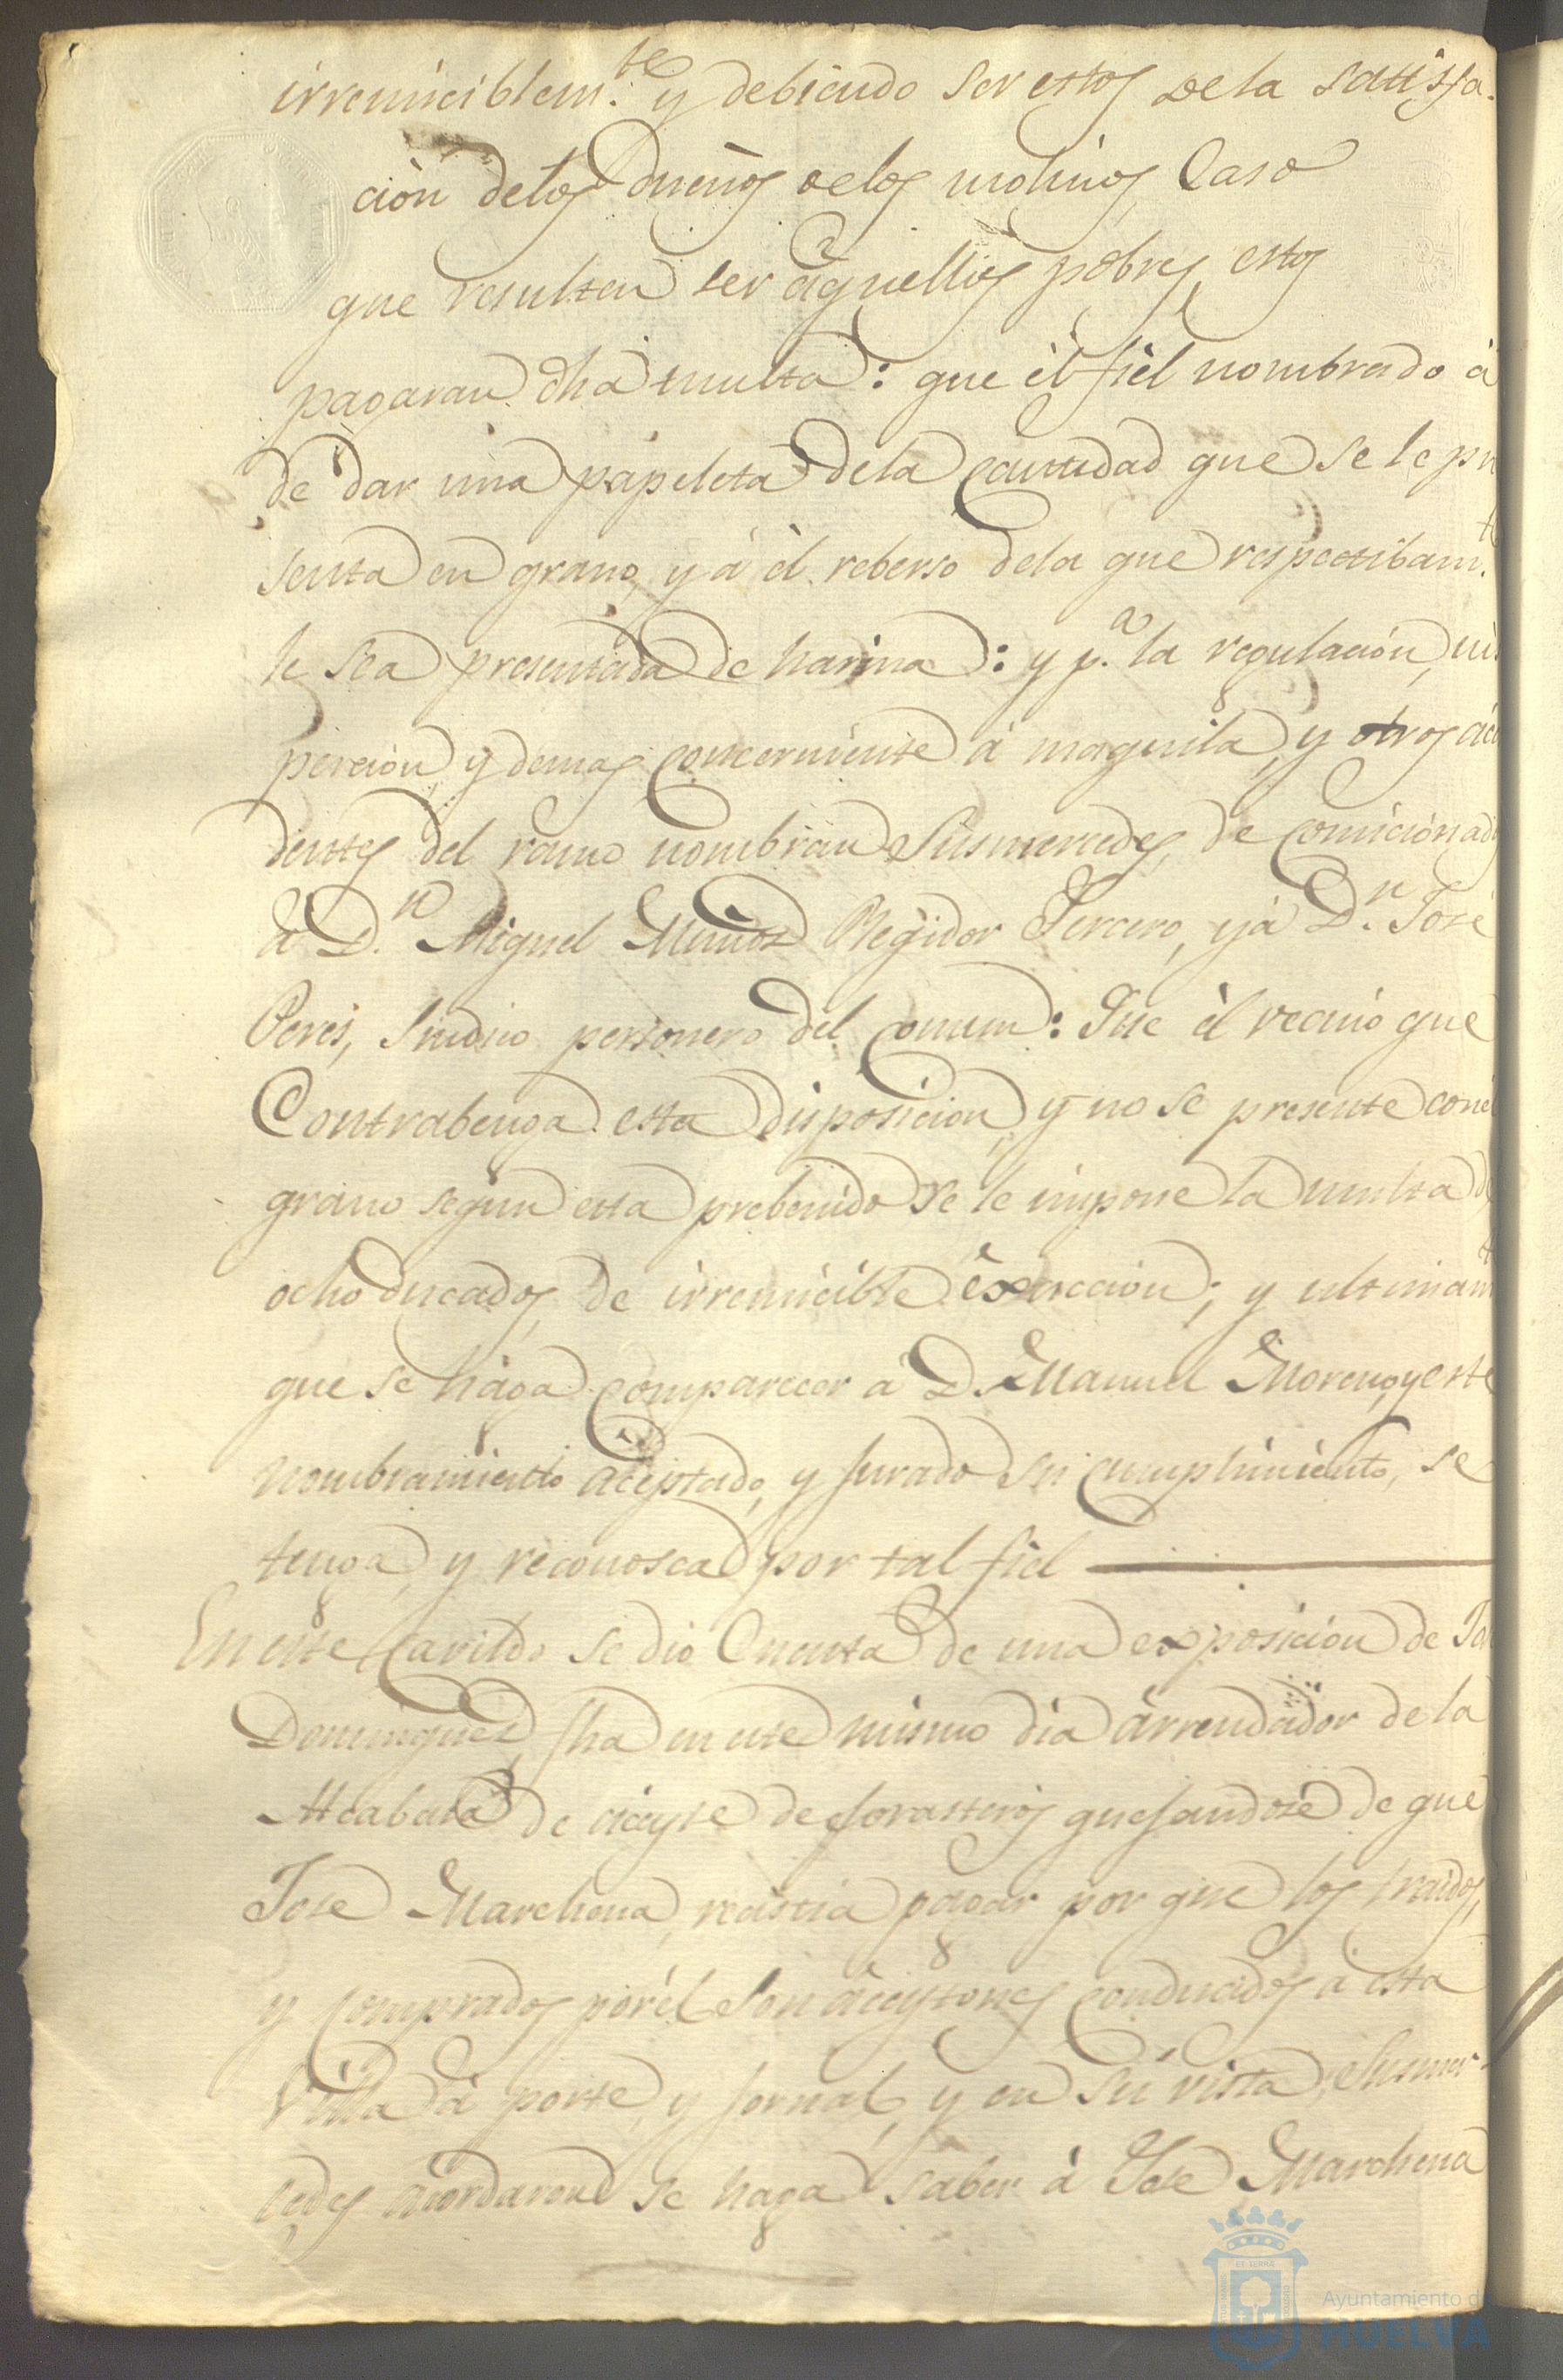 irremiciblem.te y debiendo ser estos de la satisfa-
ción delos dueños delos molinos Caso
que resulten ser aquellos pobres, estos
pagaran dha multa: que èl fièl nombrado à
de dar una papeleta dela cantidad que se le pre
senta en grano, y à èl reberso dela que respectibam.te
le sea presentada de harina: y p.a la regulación,
pección, y demas concerniente à maquila, y otros àcci
dentes del ramo nombran Susmercedes, de comicionados
à D.n Miguel Muñoz Regidor Tercero, y à D.n José
Peres, Sindico personero del comun: Que èl vecino que
Contrabenga esta disposicion, y no se presente con el
grano segun esta prebenido se le impone la multa de
ocho ducados, de irremicible èxaccion; y ultimam.te
que se haga comparecer à D. Manuel Moreno, y este
nombramiento aceptado, y jurado su cumplimiento, se
tenga, y reconosca por tal fiel
En este Cavildo se dio Cuenta de una exposición de
Dominguez, fha en este mismo dia àrrendador de la
Alcabala de àceyte de forasteros quejandose de que
Jose Marchena, resistia pagar por que los traidos,
y comprados por èl Son àceytones conducidos à esta
Villa à porte, y jornal, y en su vista, Susmer-
sedes acordaron se haga saber à Jose Marchena
Ayuntamiento de
HUELVA